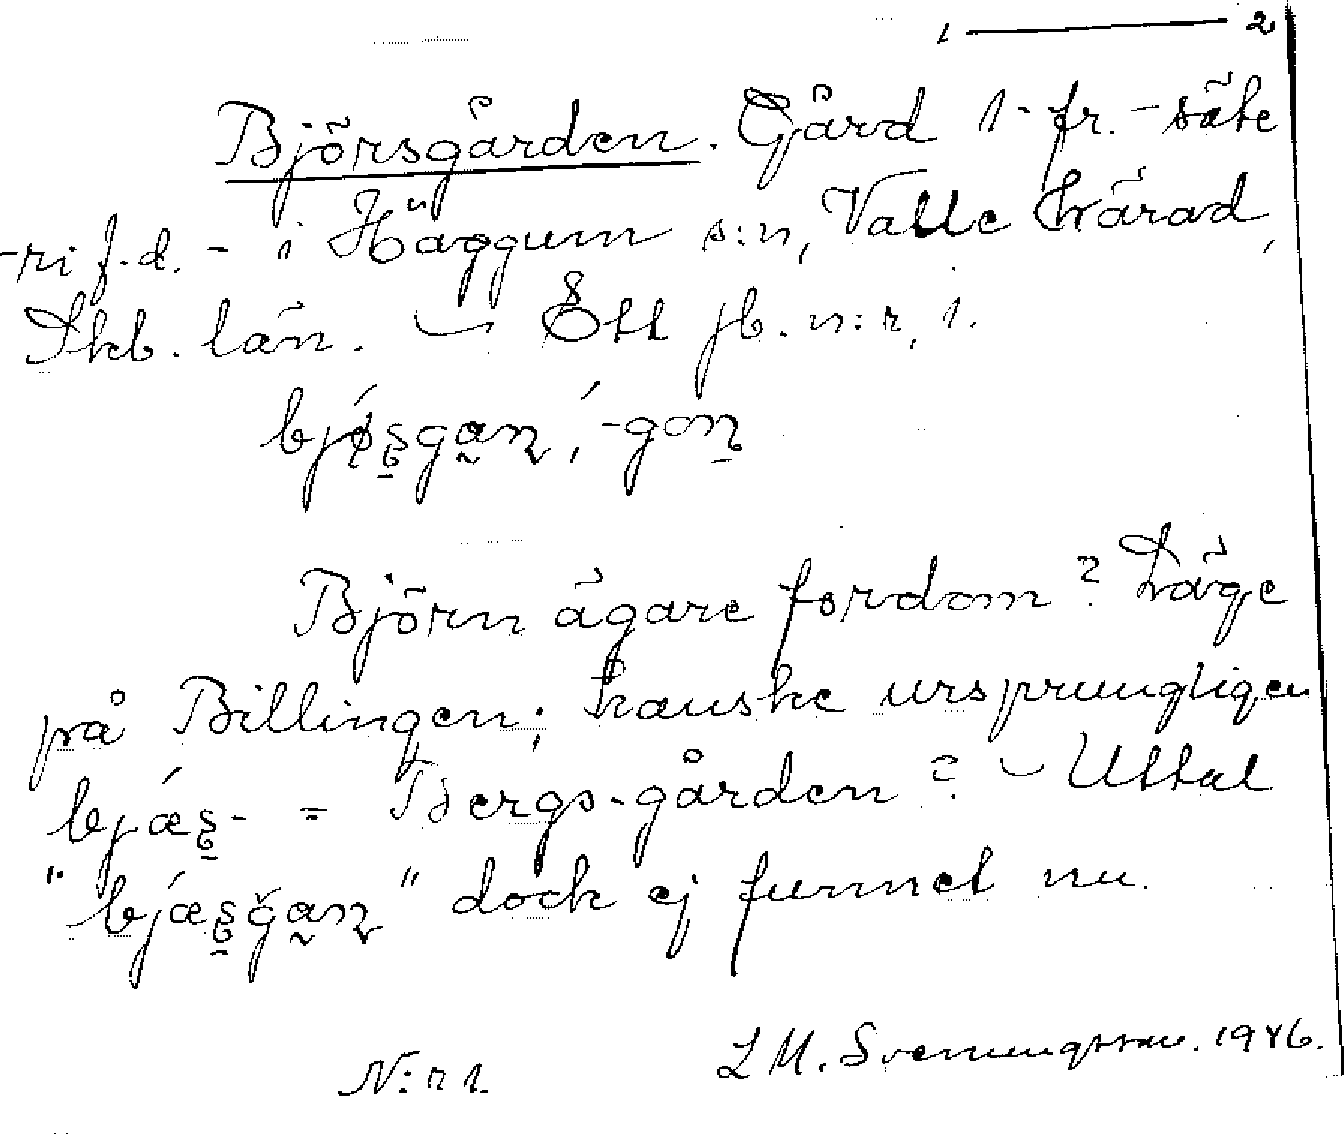 1 — 2
Björsgården. Gård 1 - fr. - säte
-ri f.d. - i Häggum s:n, Valle härad,
Skb. län. — Ett jb. n:r, 1.
bjǿşgan, -gon
Björn ägare fordom? Läge
på Billingen; kanske ursprungligen
bjǽş- = Bergs-gården? - Uttal
"bjǽşğan" dock ej funnet nu.
N:r 1. L M. Svenungsson. 1946.